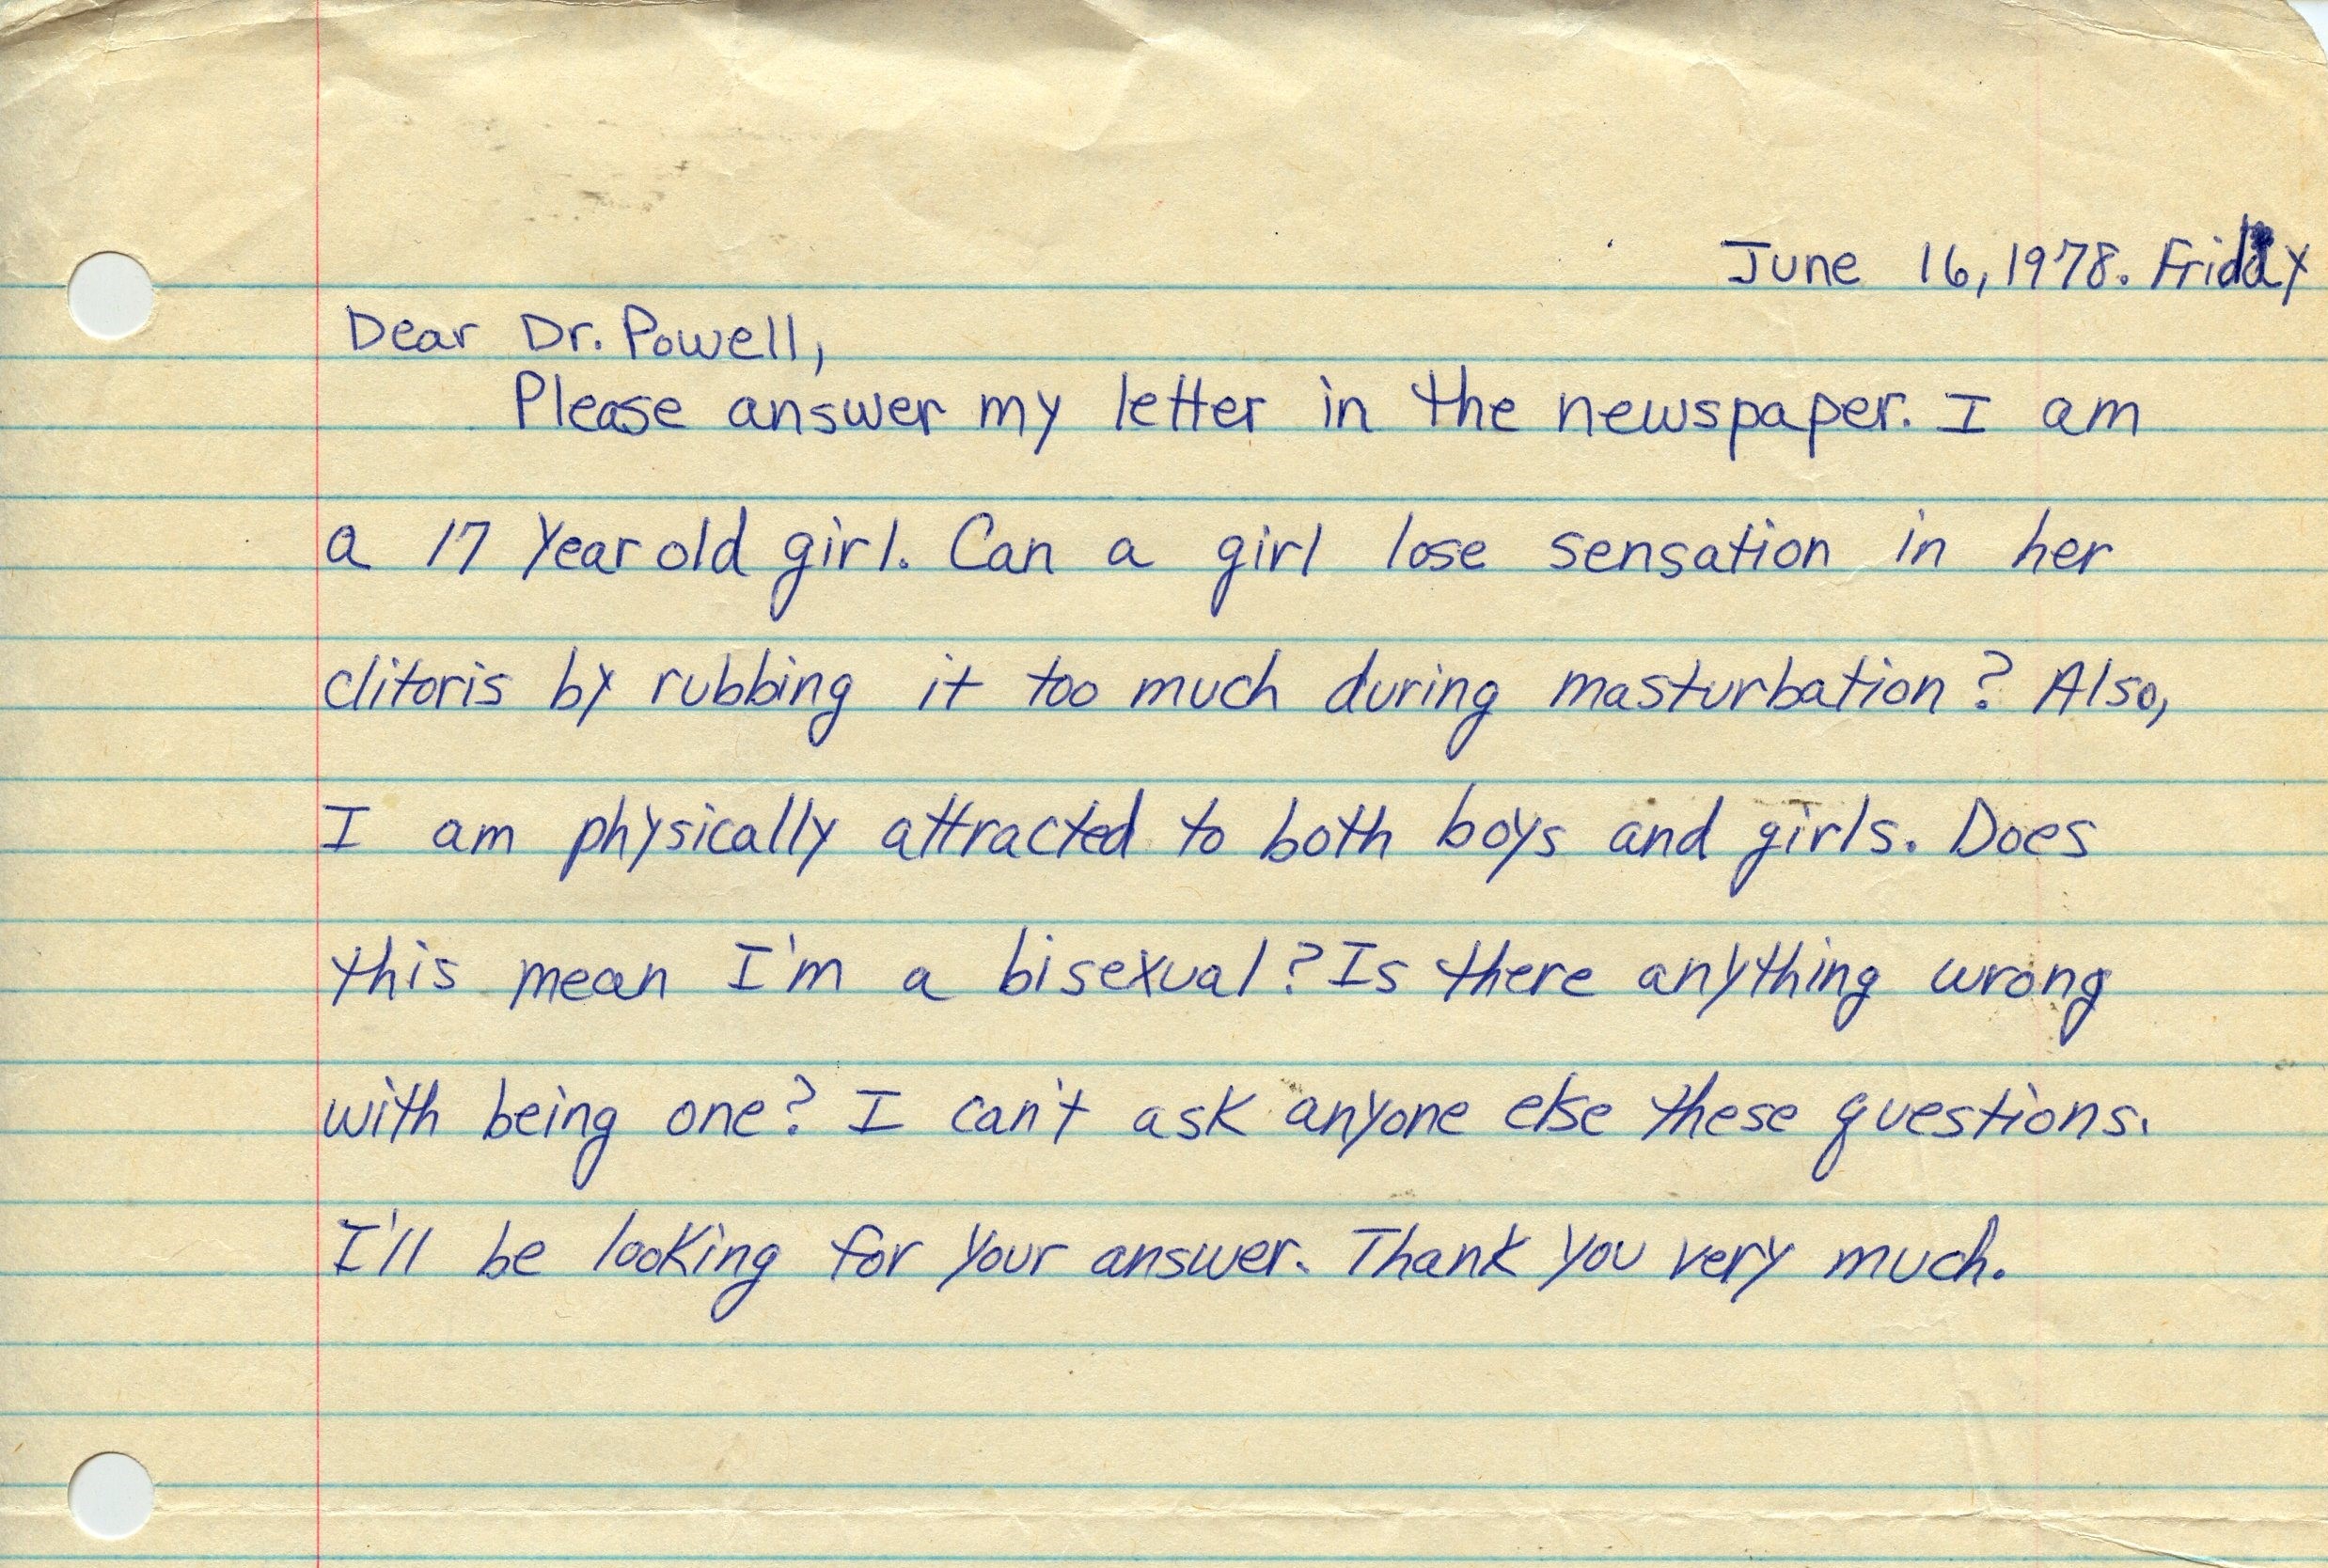 June 16, 1978. Friday
Dear Dr. Powell,
Please answer my letter in the newspaper. I am
a 17 year old girl. Can a girl lose sensation in her
clitoris by rubbing it too much during masturbation? Also,
I am physically attracted to both boys and girls. Does
this mean I'm a bisexual? Is there anything wrong
with being one? I can't ask anyone else these questions.
I'll be looking for your answer. Thank you very much.